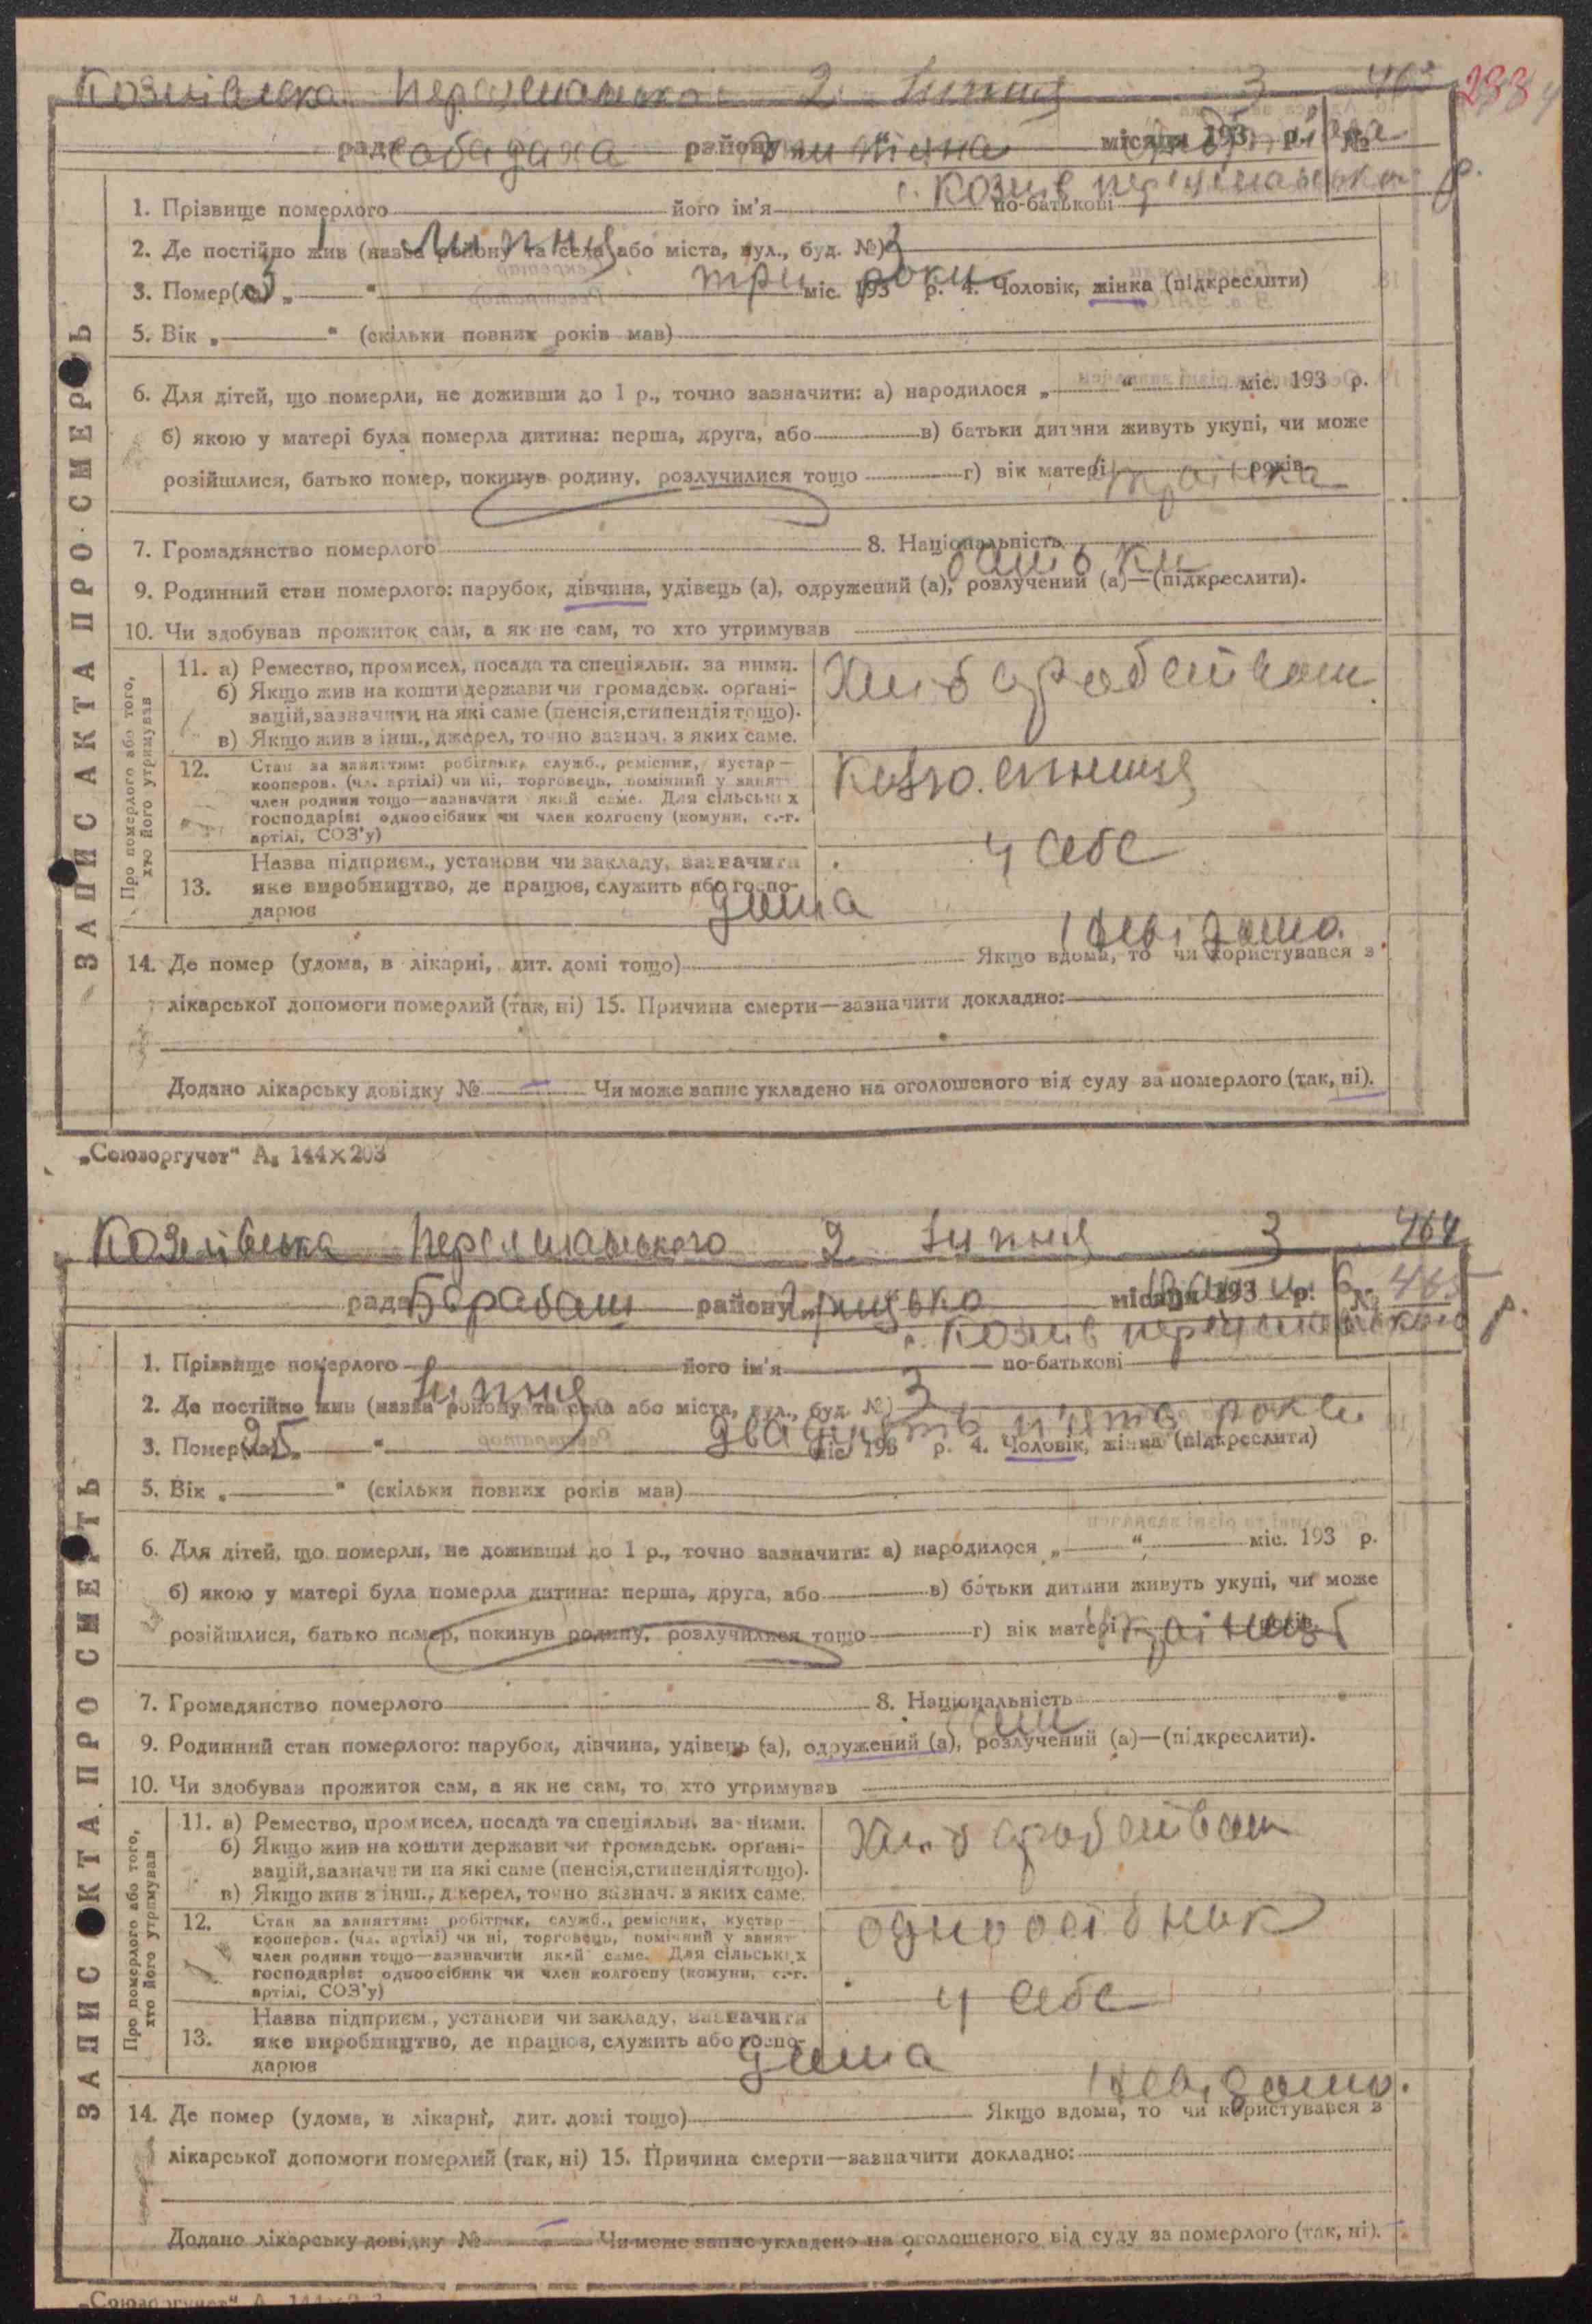 Козлівська Переяславсько 2 липня 3 463 233
рада района місяця 193 р. №
с. Козлів Переяславсько р.
1. Прізвище померлого його ім'я по-батькові
1 липня 3
2. Де постійно жив (назва району та села або міста, вул., буд. №)
3 три роки
3. Помер(ла) „ “ міс. 193 р. 4. Чоловік, жінка (підкреслити)
5. Вік „ “ (скільки повних років мав)
6. Для дітей, що померли, не доживши до 1 р., точно зазначити: а) народилося „ “ міс. 193 р.
б) якою у матері була померла дитина: перша, друга, або в) батьки дитини живуть укупі, чи може
розійшлися, батько помер, покинув родину, розлучилися тощо г) вік матері років
Українка
7. Громадянство померлого 8. Національність
батьки
9. Родинний стан померлого: парубок, дівчина, удівець (а), одружений (а), розлучений (а)—(підкреслити).
10. Чи здобував прожиток сам, а як не сам, то хто утримував
11. а) Ремество, промисел, посада та спеціяльн. за ними.
б) Якщо жив на кошти держави чи громадськ. органі-
зацій, зазначити на які саме (пенсія, стипендія тощо).
в) Якщо жив з інш., джерел, точно зазнач. з яких саме.
Хліборобством
12. Стан за заняттям: робітник, служб., ремісник, кустар—
кооперов. (чл. артілі) чи ні, торговець, помічний у занят-
член родини тощо—зазначити який саме. Для сільських
господарів: одноосібник чи член колгоспу (комуни, с.-г.
артілі, СОЗ'у)
13. Назва підприєм., установи чи закладу, зазначити
яке виробництво, де працює, служить або госпо-
дарює
у себе
дома невідомо.
14. Де помер (удома, в лікарні, дит. домі тощо) Якщо вдома, то чи користувався з
лікарської допомоги померлий (так, ні) 15. Причина смерти—зазначити докладно:
Додано лікарську довідку № — Чи може запис укладено на оголошеного від суду за померлого (так, ні).
ЗАПИС АКТА ПРО СМЕРТЬ
Про померлого або того,
хто його утримував
„Союзоргучет“ А₅ 144×203
Козлівська Переяславського 2 липня 3 464
рада Барабаш района Грицько місяця 193 р. № 465
с. Козлів Переяславського р.
1. Прізвище померлого його ім'я по-батькові
1 липня 3
2. Де постійно жив (назва району та села або міста, вул., буд. №)
25 двадцять п'ять роки
3. Помер(ла) „ “ міс. 193 р. 4. Чоловік, жінка (підкреслити)
5. Вік „ “ (скільки повних років мав)
6. Для дітей, що померли, не доживши до 1 р., точно зазначити: а) народилося „ “ міс. 193 р.
б) якою у матері була померла дитина: перша, друга, або в) батьки дитини живуть укупі, чи може
розійшлися, батько помер, покинув родину, розлучилися тощо г) вік матері років
Українець
7. Громадянство померлого 8. Національність
сам
9. Родинний стан померлого: парубок, дівчина, удівець (а), одружений (а), розлучений (а)—(підкреслити).
10. Чи здобував прожиток сам, а як не сам, то хто утримував
11. а) Ремество, промисел, посада та спеціяльн. за ними.
б) Якщо жив на кошти держави чи громадськ. органі-
зацій, зазначити на які саме (пенсія, стипендія тощо).
в) Якщо жив з інш., джерел, точно зазнач. з яких саме.
Хліборобством
12. Стан за заняттям: робітник, служб., ремісник, кустар—
кооперов. (чл. артілі) чи ні, торговець, помічний у занят-
член родини тощо—зазначити який саме. Для сільських
господарів: одноосібник чи член колгоспу (комуни, с.-г.
артілі, СОЗ'у)
одноосібник
13. Назва підприєм., установи чи закладу, зазначити
яке виробництво, де працює, служить або госпо-
дарює
у себе
дома невідомо.
14. Де помер (удома, в лікарні, дит. домі тощо) Якщо вдома, то чи користувався з
лікарської допомоги померлий (так, ні) 15. Причина смерти—зазначити докладно:
Додано лікарську довідку № — Чи може запис укладено на оголошеного від суду за померлого (так, ні).
ЗАПИС АКТА ПРО СМЕРТЬ
Про померлого або того,
хто його утримував
„Союзоргучет“ А